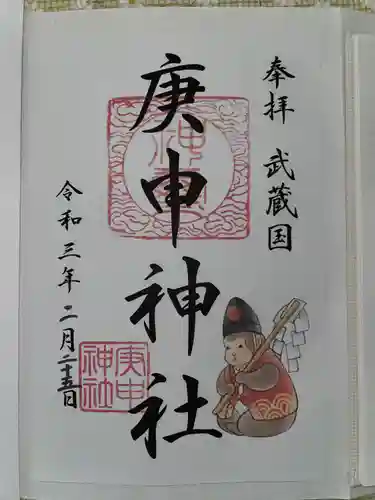 奉拝 武蔵国
庚申神社
庚申
神社
令和三年二月二十五日